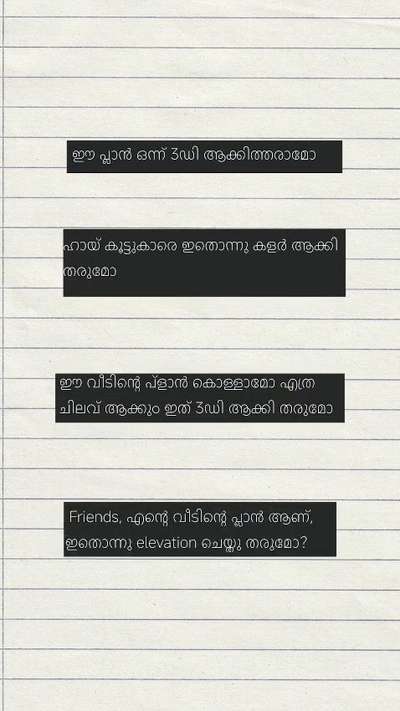 ഈ പ്ലാൻ ഒന്ന് 3ഡി ആക്കിത്തരാമോ
ഹായ് കൂട്ടുകാരെ ഇതൊന്നു കളർ ആക്കി
തരുമോ
ഈ വീടിന്റെ പ്ളാൻ കൊള്ളാമോ എത്ര
ചിലവ് ആക്കും ഇത് 3ഡി ആക്കി തരുമോ
Friends, എന്റെ വീടിന്റെ പ്ലാൻ ആണ്,
ഇതൊന്നു elevation ചെയ്തു തരുമോ?